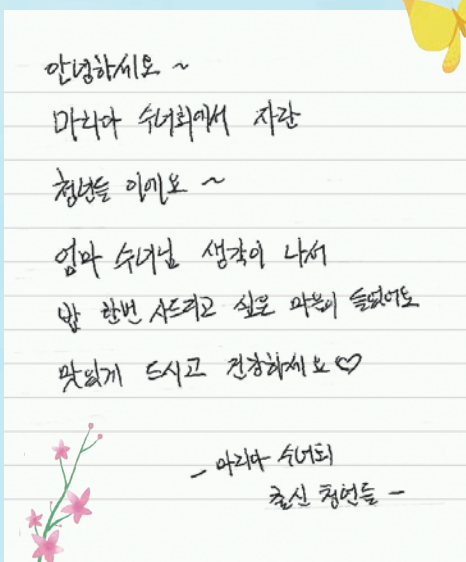 안녕하세요 ~
마리아 수녀회에서 자란
청년들 이에요 ~
엄마 수녀님 생각이 나서
밥 한번 사드리고 싶은 마음이
맛있게 드시고 건강하세요♡
- 마리아 수녀회
출신 청년들 -